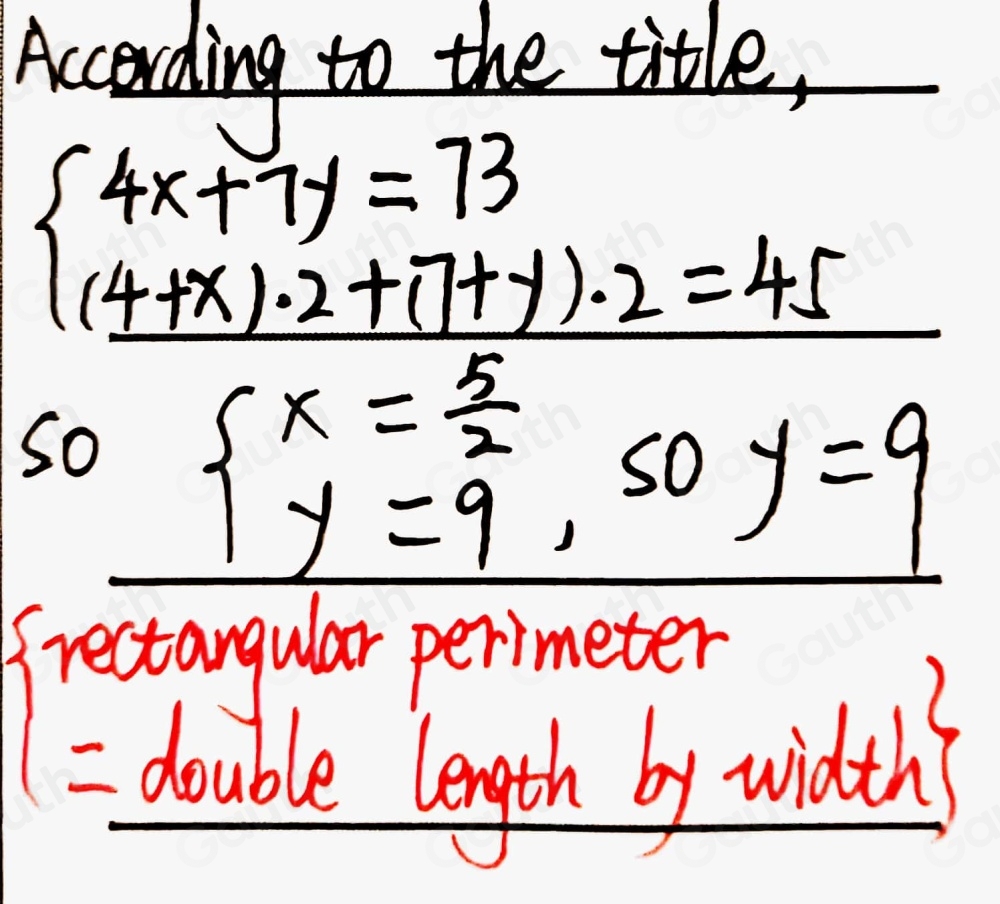 According to the title,
{ 4x+7y=73
(4+x)·2+(7+y)·2=45
so { x = 5/2
y = 9 , so y=9
{rectangular perimeter
= double length by width}